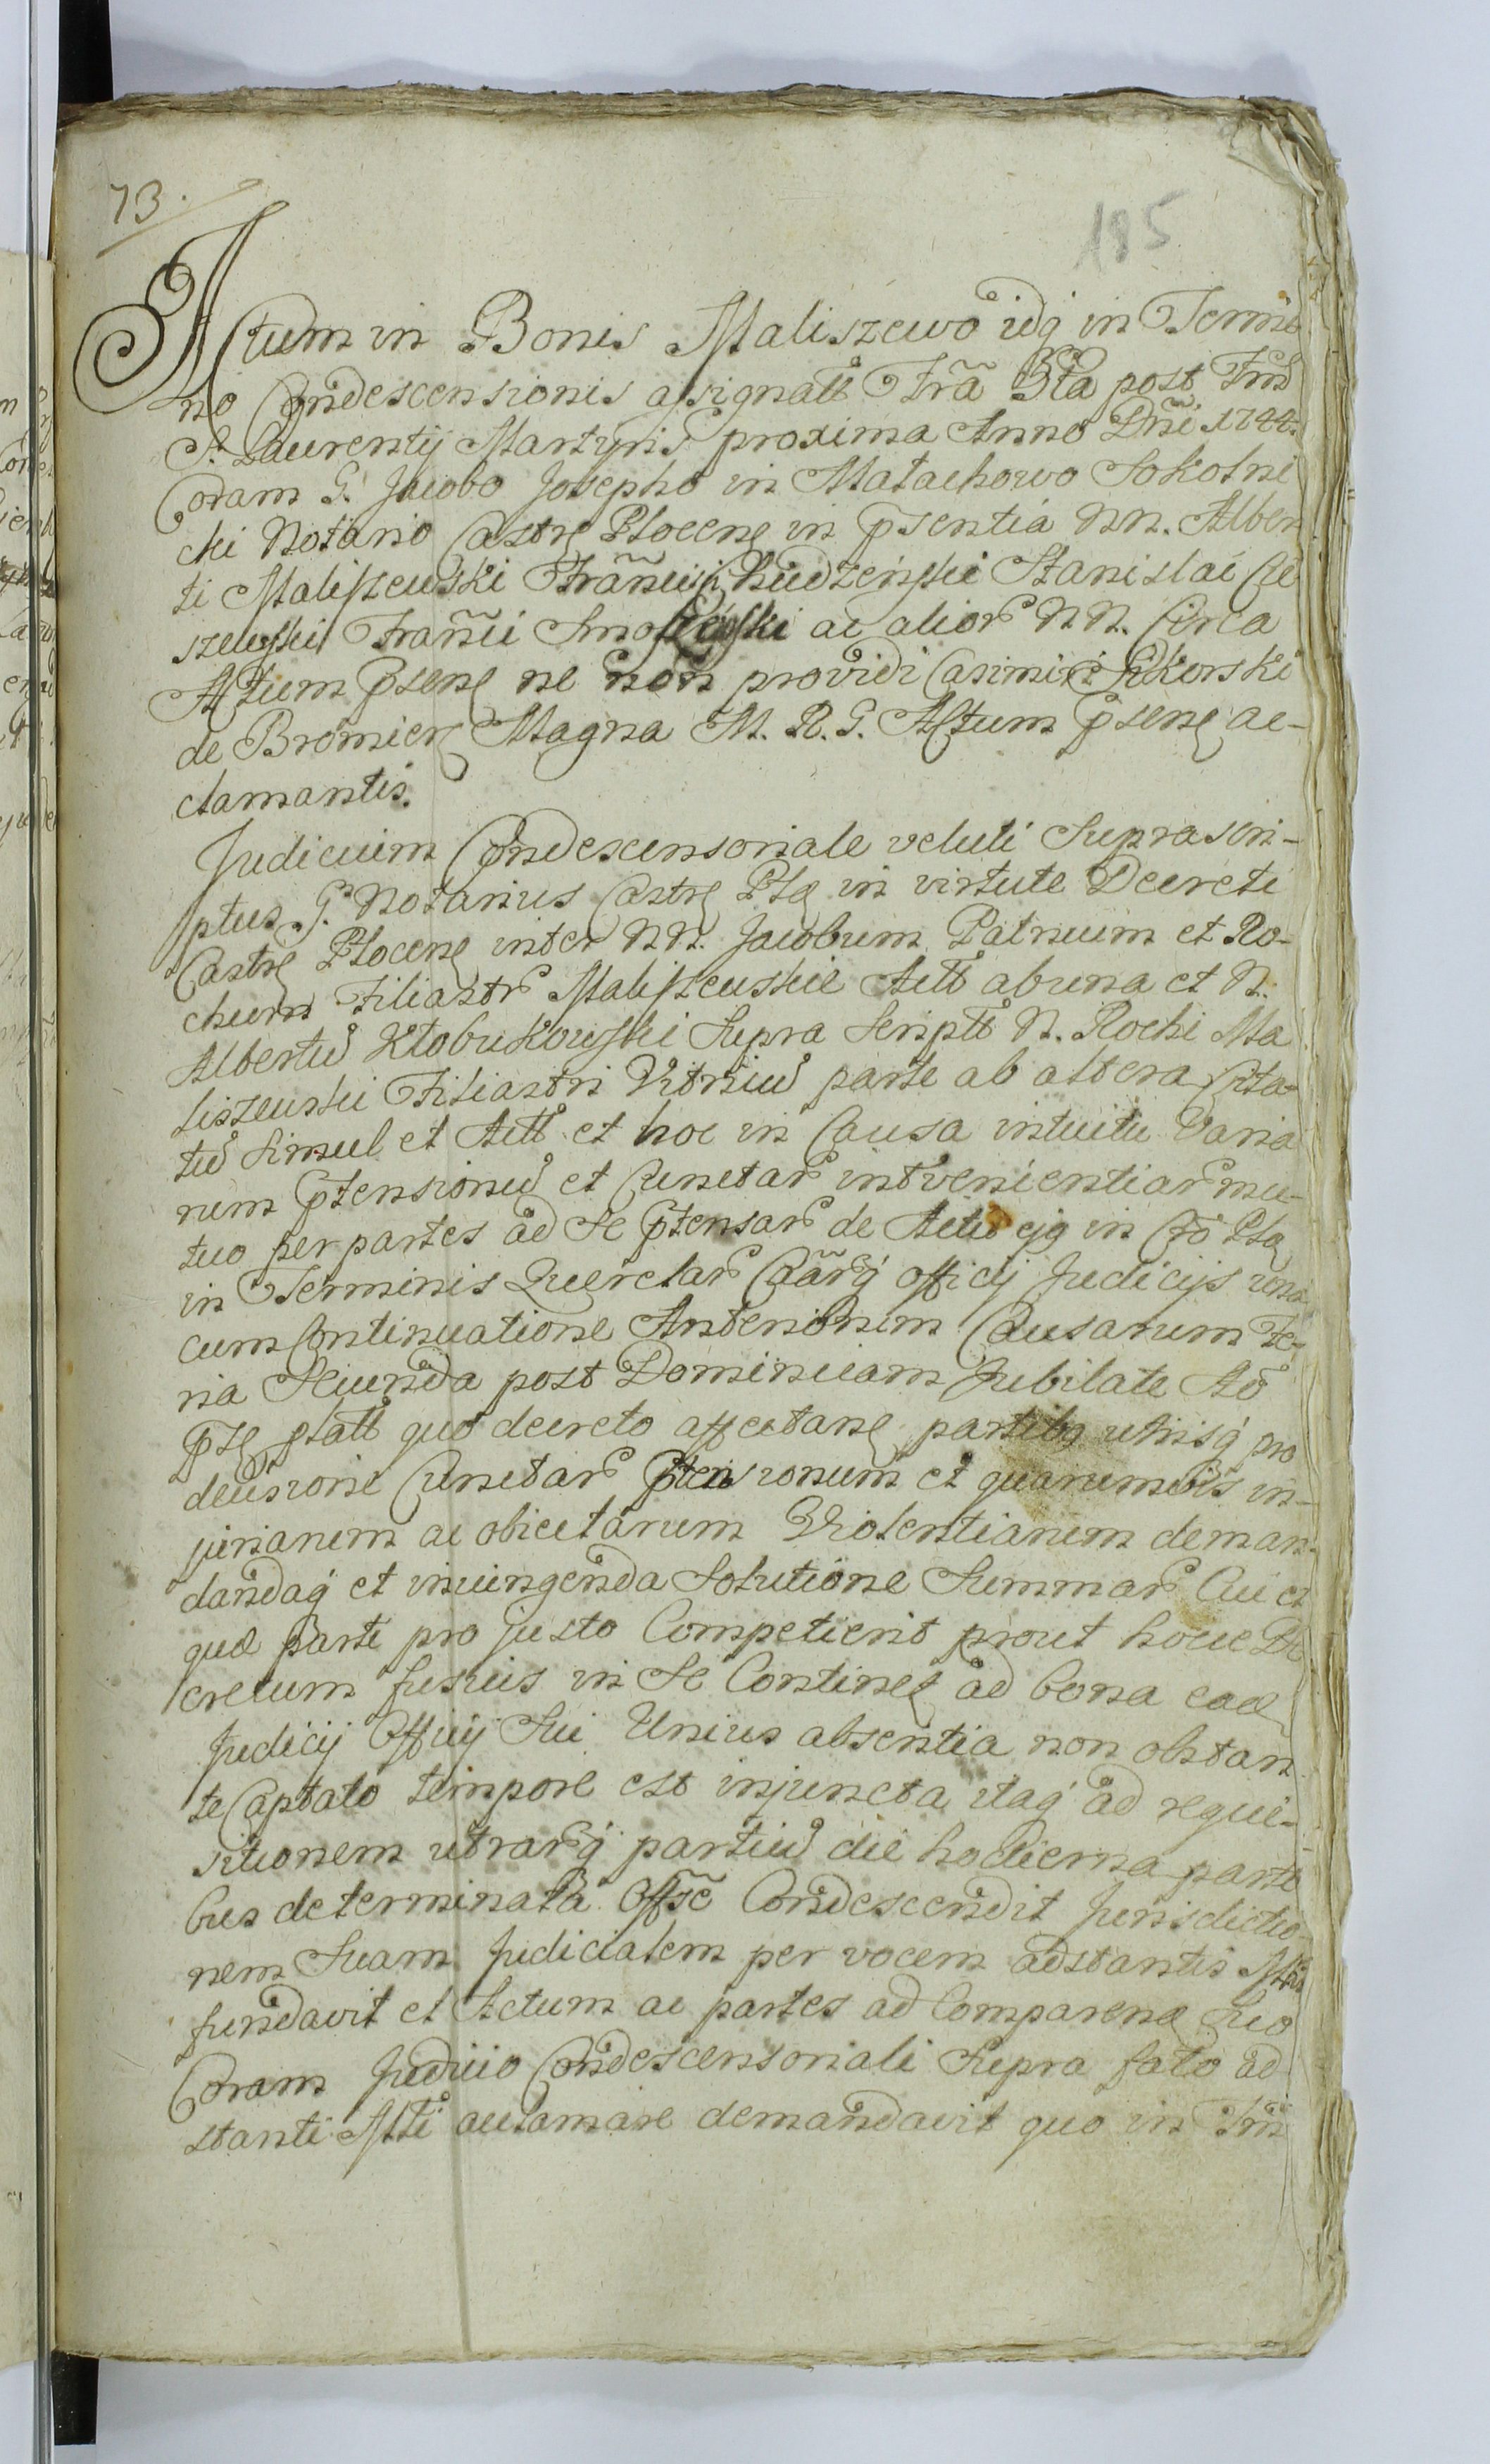 73.
185
Actum in Bonis Maliszewo idq in Termi
no Condescensionis assignatt Fra 3tia post Fm
S. Laurentij Martyris proxima Anno Dni 1744.
Coram G. Jacobo Josepho in Małachowo Sokolni
cki Notario Castr Plocen in psentia NN. Alber
ti Maliszewski Stanislai
szewski Franci ac alior NN. Circa
Actum psen ne non providi Casimiri Sikorski
de Bromierz Magna M. R. G. Actum psen ac-
clamantis.
Judicium Condescensoriale veluti Suprascri-
ptus G. Notarius Castr Pls in virtute Decreti
Castr Plocen inter NN. Jacobum Patruum et Ro-
chum Filiastr Maliszewskie Actt ab una et N.
Albertu Kłobukowski Supra Scriptt N. Rochi Ma
liszewski Filiastri Vitricu parte ab altera Cita-
tu Simul et Actt et hoc in Causa intuitu Varia
rum ptensionu et Cunctar intvenientiar mu-
tuo per partes ad Se ptensar de Actu ejq in Cro Pls
in Terminis Querelar Caarq officij Judicijs una
cum Continuatione Anteriorum Causarum Fe-
ria Secunda post Dominicam Jubilate Ao
pte quo decreto affectan partibq utrisq pro
decisione Cunctar ptensionum et quarumvis in-
juriarum ac obiectarum Violentiarum deman-
dandaq et iniungenda Solutione Summar Cui et
quae parte pro justo Competierit prout hocce De
cretum fusius in Se Continet ad bona ead
Judicij Officij Sui Unius absentia non obstan
te Captato tempore est injuncta itaq ad requi-
sitionem utrarq partiu die hodierna parti
bus determinata Offse Condescendit Jurisdictio-
nem Suam Judicialem per vocem adstantis Mtis
fundavit et Actum ac partes ad Comparen Suo
Coram Judicio Condescensoriali Supra fato ad
stanti Mtti acclamare demandavit quo in Tmi